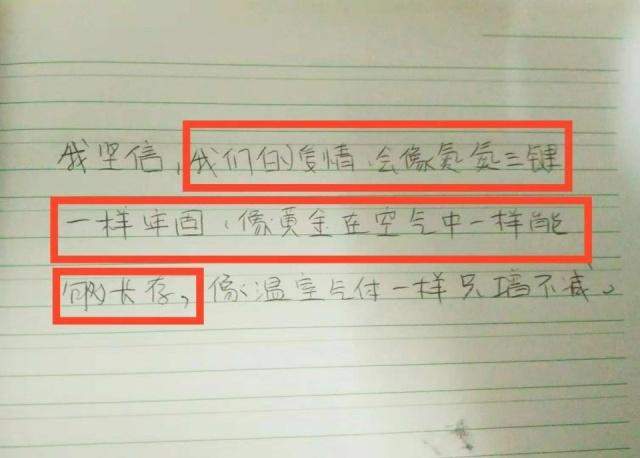 我坚信,我们的爱情,会像氮氮三键
一样牢固,像黄金在空气中一样能
够长存,像温室气体一样只增不减。